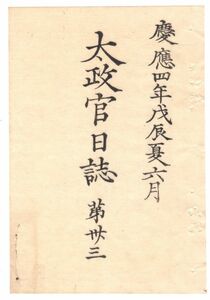 慶應四年戊辰夏六月
太政官日誌 第卅三